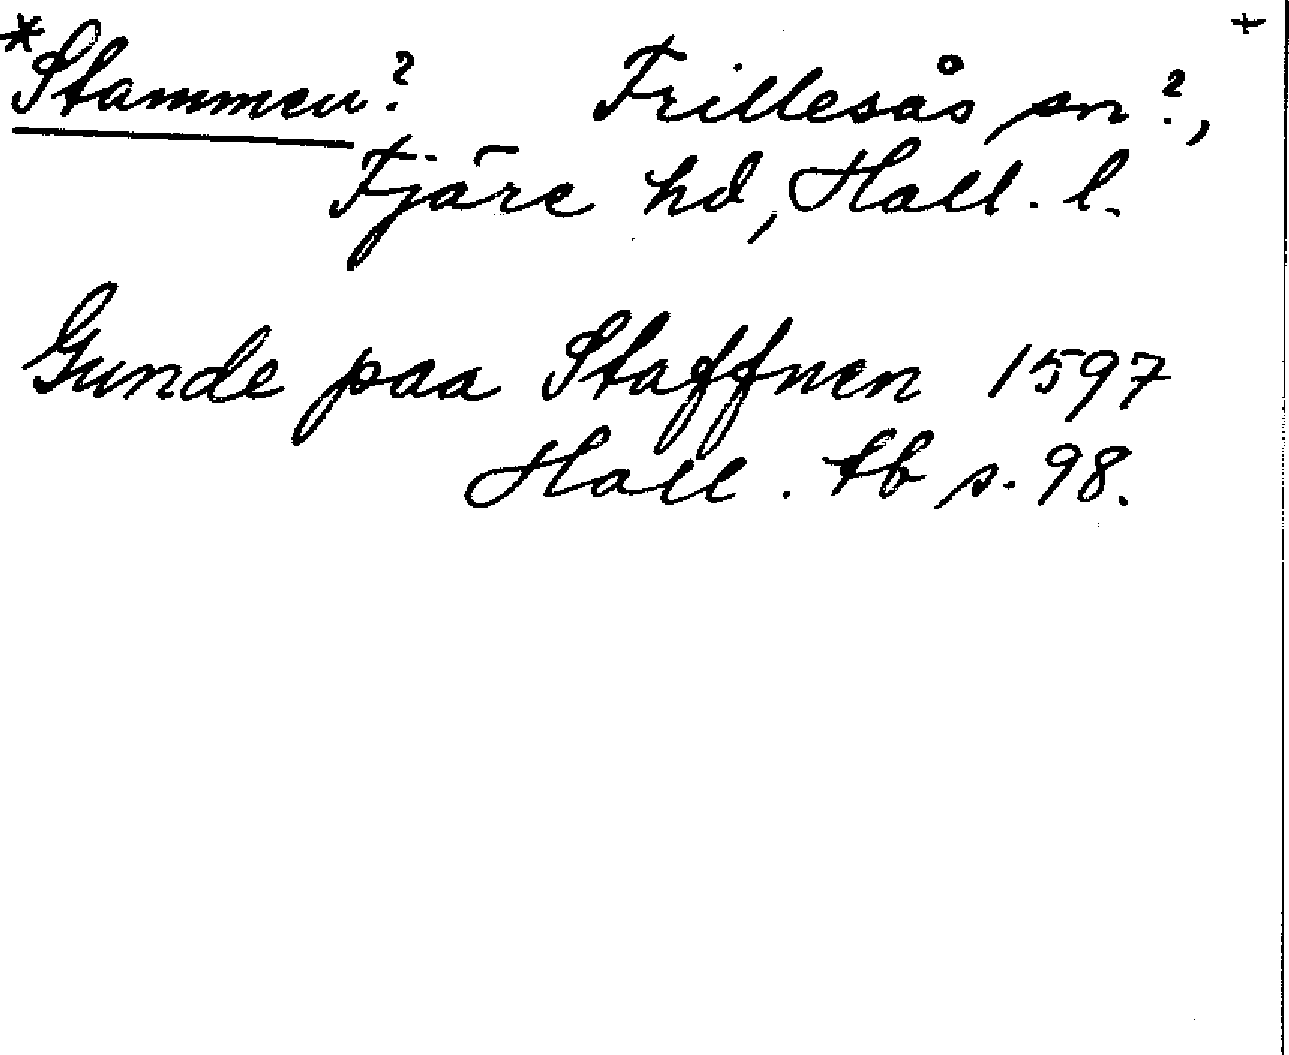 *Stammen? Frillesås sn?, +
Fjäre hd, Hall. l.
Gunde paa Staffnen 1597
Hall. tb s. 98.